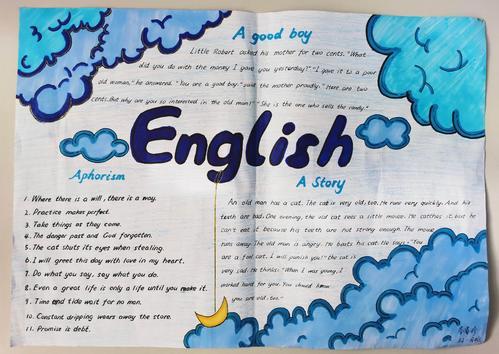 A good boy
Little Robert asked his mother for two cents. "What
did you do with the money I gave you yesterday?" "I gave it to a poor
old woman," he answered. "You are a good boy," said the mother proudly. "Here are two
cents. But why are you so interested in the old man?" "She is the one who sells the candy."
English
Aphorism
1. Where there is a will, there is a way.
2. Practice makes perfect.
3. Take things as they come.
4. The danger past and God forgotten.
5. The cat shuts its eyes when stealing.
6. I will greet this day with love in my heart.
7. Do what you say, say what you do.
8. Even a great life is only a life until you make it.
9. Time and tide wait for no man.
10. Constant dripping wears away the stone.
11. Promise is debt.
A Story
An old man has a cat. The cat is very old, too. He runs very quickly. And his
teeth are bad. One evening, the old cat sees a little mouse. He catches it, but he
can't eat it because his teeth are not strong enough. The mouse
runs away. The old man is angry. He beats his cat. He says: "You
are a fool cat. I will punish you!" the cat is
very sad. He thinks: "When I was young, I
worked hard for you. You should know
you are old, too."